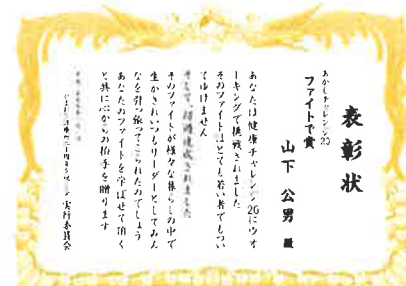 表彰状
あかしチャレンジ20
ファイトで賞
山下 公男 殿
あなたは健康チャレンジ20にウォ
ーキングで挑戦されました
そのファイトはとても若い者でもつい
てゆけません
そして、目標達成されました
そのファイトが様々な暮らしの中で
生かされいつもリーダーとしてみん
なを引っ張ってこられたのでしょう
あなたのファイトを学ばせて頂く
と共に心からの拍手を贈ります
実行委員会